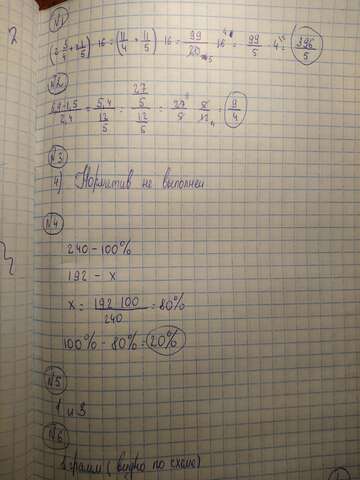 2
№1
(2 3/4 + 2 1/5) · 16 = (11/4 + 11/5) · 16 = 99/20 · 16 = 99/5 · 4 = 396/5
№2
6,9-1,5/2,4 = 5,4/12/5 = 27/5/12/5 = 27/5 · 5/12 = 9/4
№3
4) Норматив не выполнен
№4
240 - 100%
192 - x
x = 192 · 100/240 = 80%
100% - 80% = 20%
№5
1 и 3
№6
грамм (видно по схеме)